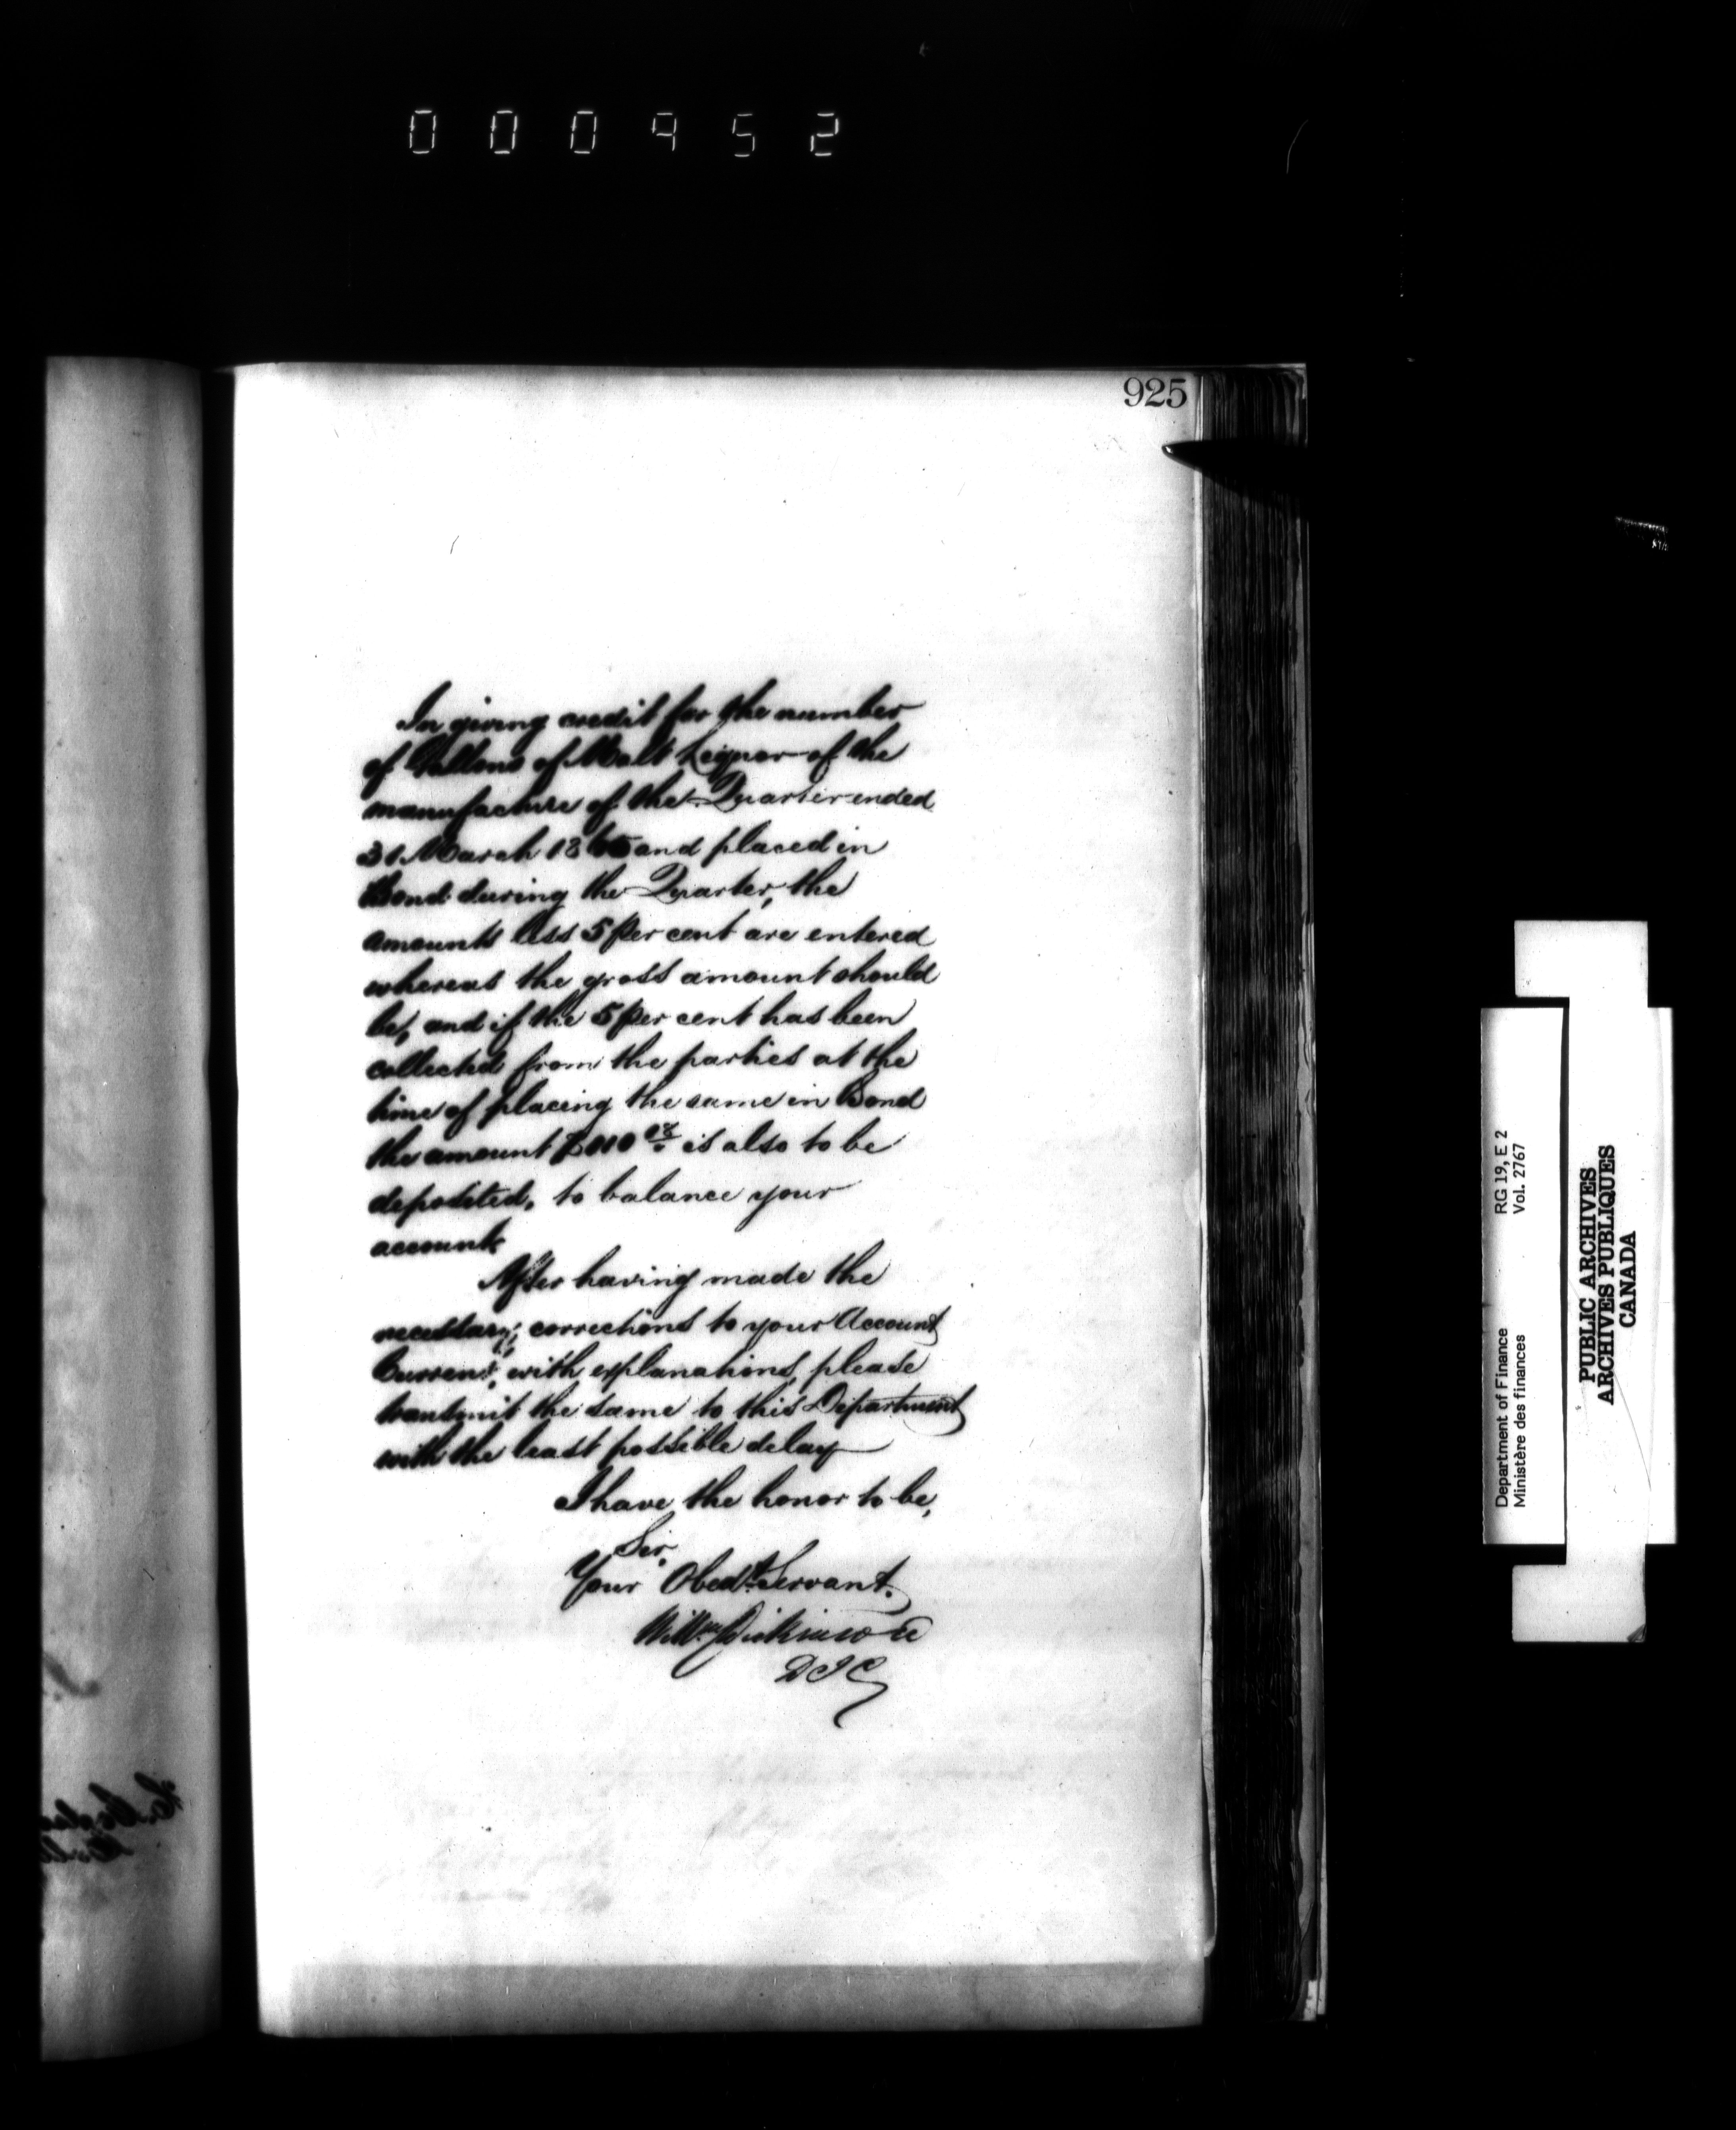 000952
925
In giving credit for the number
of Gallons of Malt Liquor of the
manufacture of the Quarter ended
31 March 18 and placed in
Bond during the Quarter, the
amounts less 5 per cent are entered
whereas the gross amount should
be, and if the 5 per cent has been
collected from the parties at the
time of placing the same in Bond
the amount is also to be
deposited, to balance your
account.
After having made the
necessary corrections to your Account
Current, with explanations, please
transmit the same to this Department
with the least possible delay
I have the honor to be,
Sir,
Your Obedt. Servant.
Willm. Dickinson
D I G
Department of Finance RG 19, E 2
Ministère des finances Vol. 2767
PUBLIC ARCHIVES
ARCHIVES PUBLIQUES
CANADA